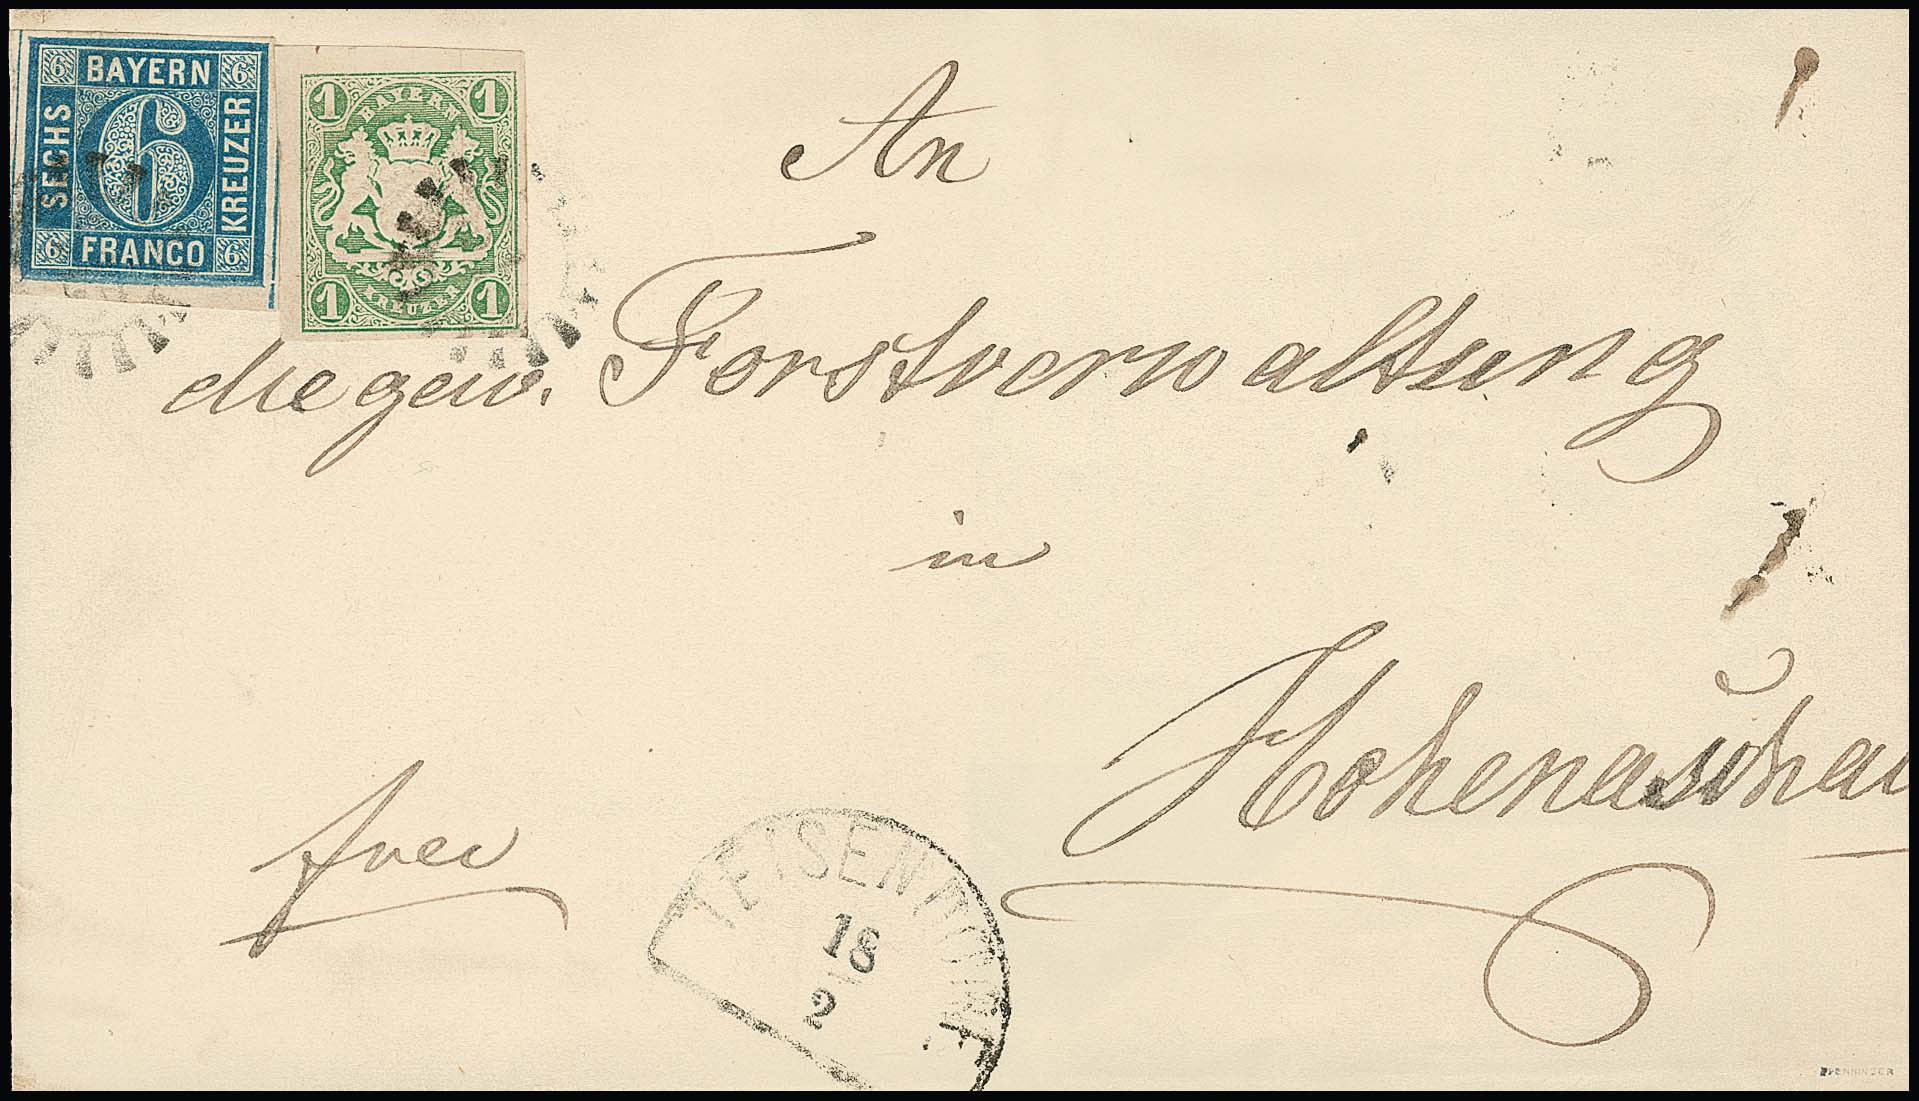 6 BAYERN 6
SECHS
6
KREUZER
6 FRANCO 6
1 BAYERN 1
1 KREUZER 1
An
die gew. Forstverwaltung
in
Hohenaschau
frei
TEISENDORF
18
2
PFENNINGER